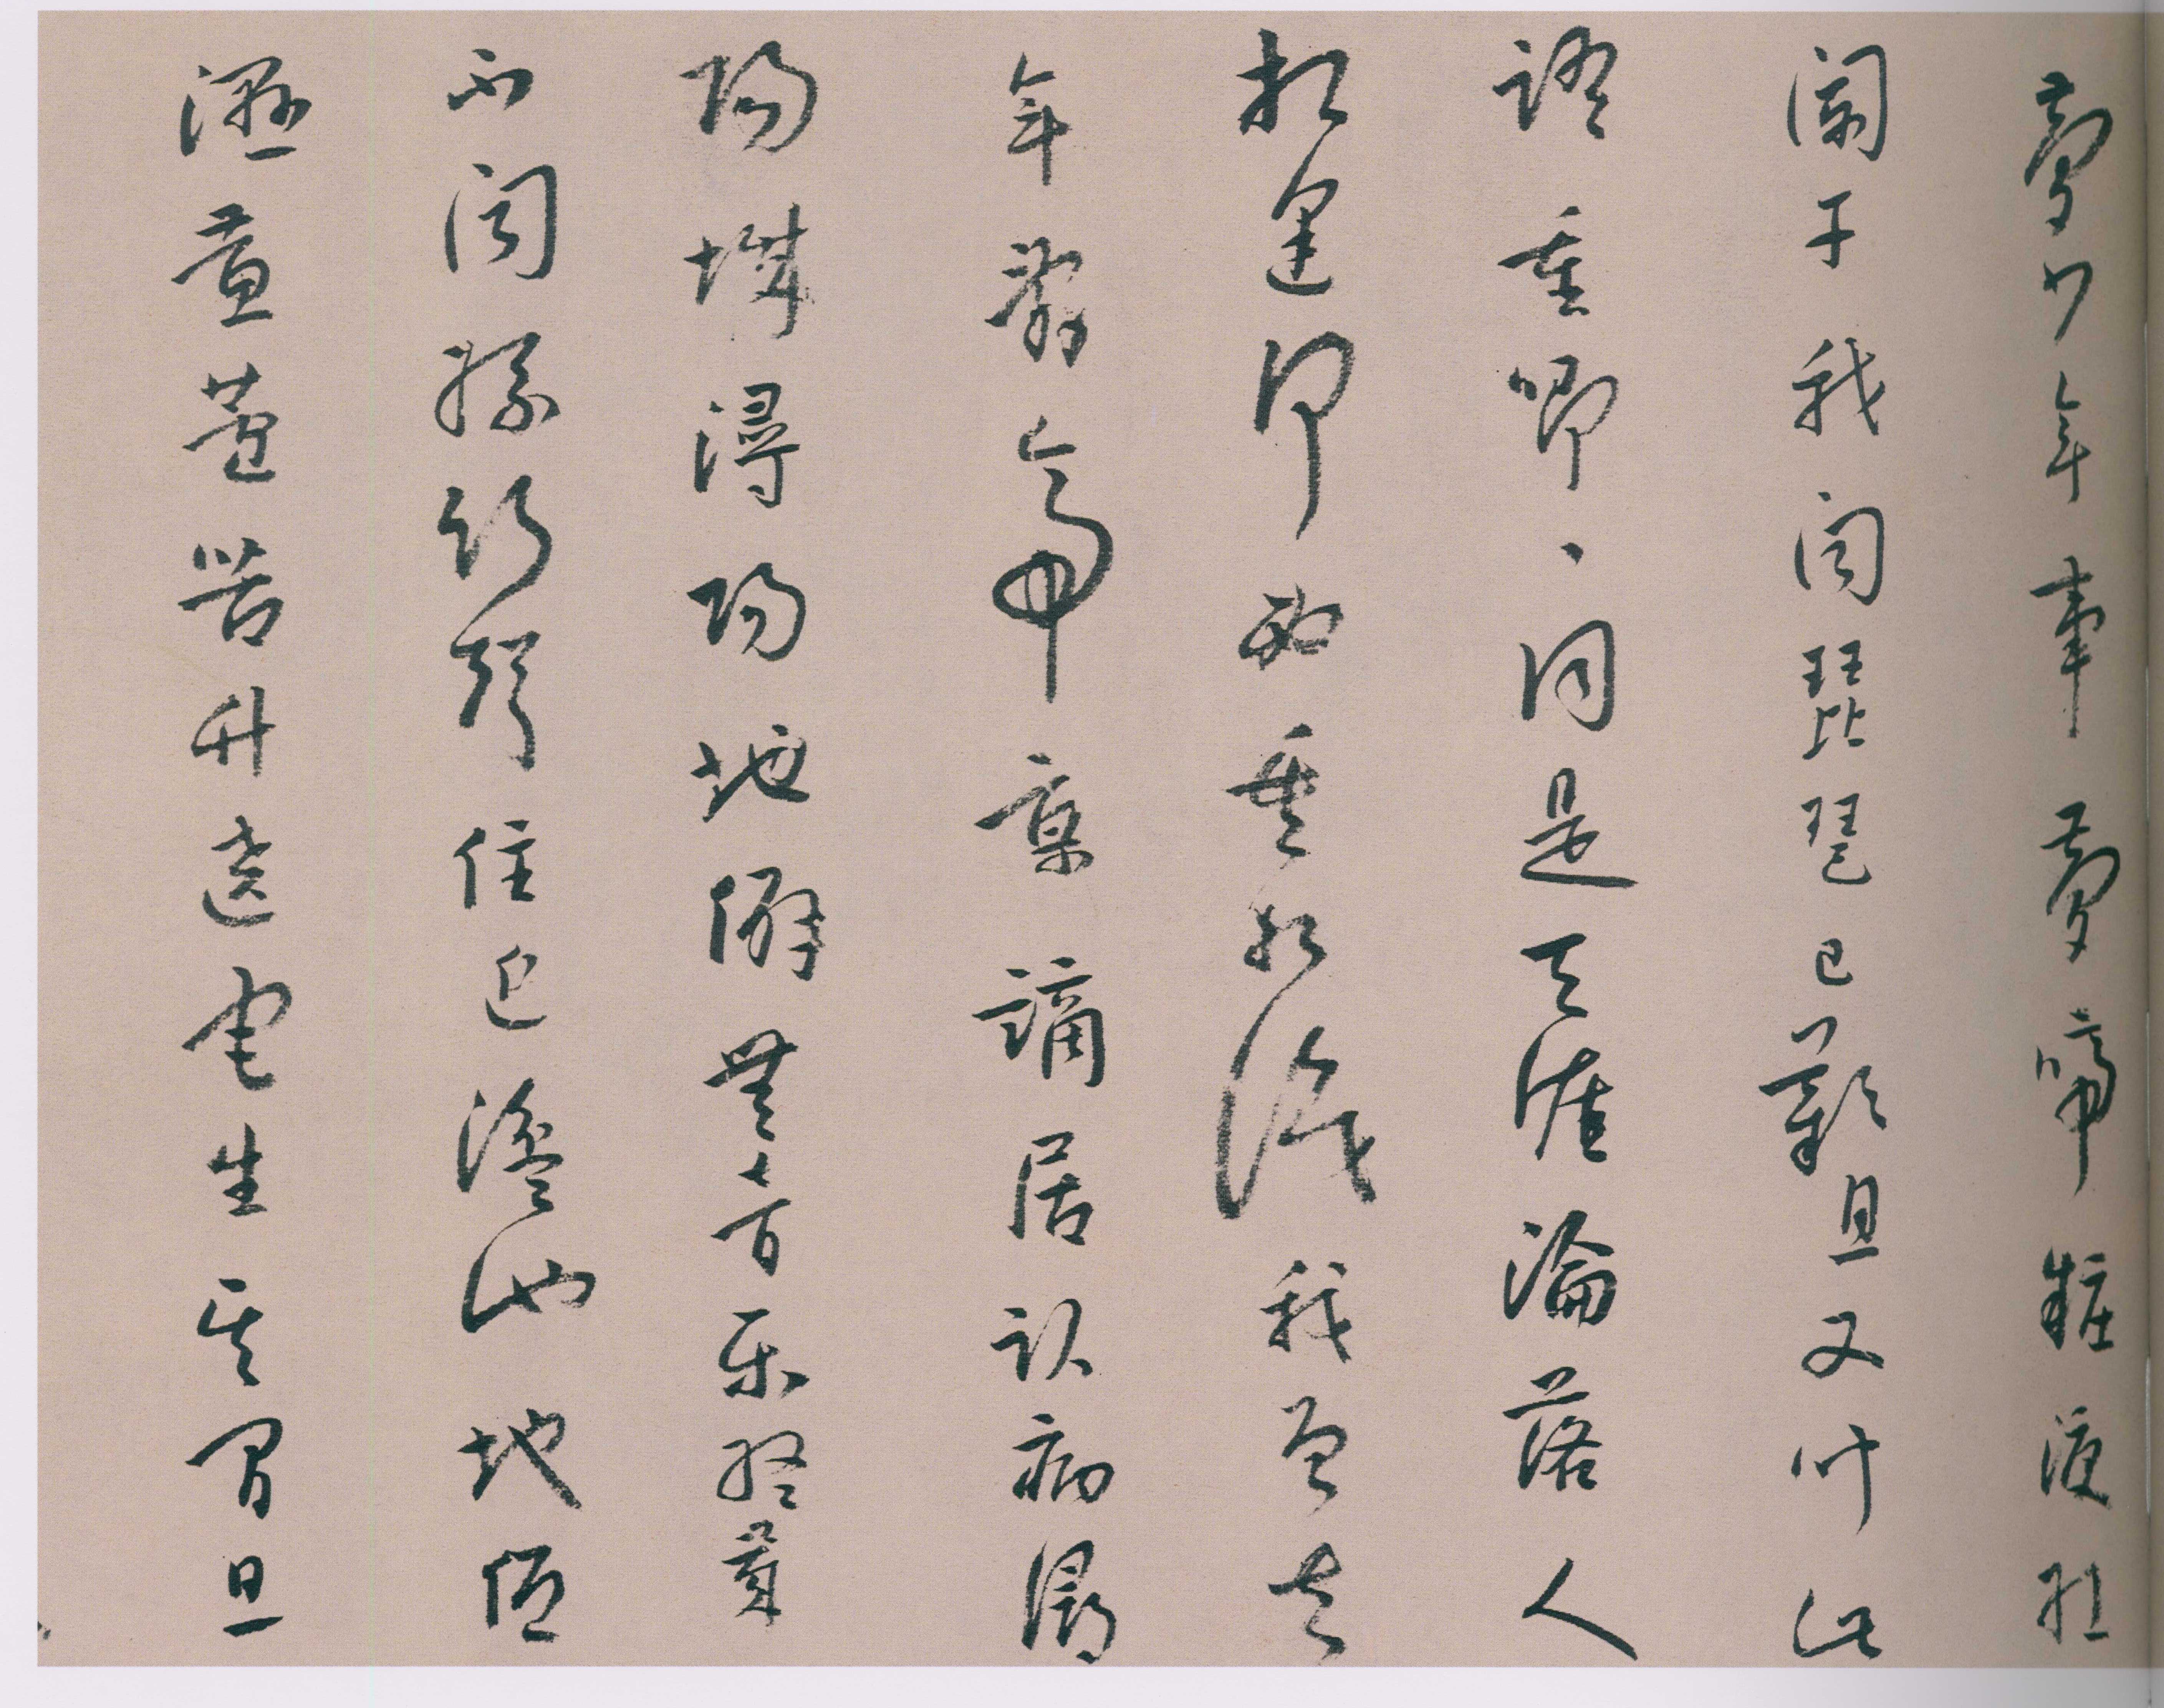 夢少年事夢啼粧淚紅
闌干我聞琵琶已歎息又此
語重唧、同是天涯淪落人
相逢何必曾相識我從去
年辭帝京謫居臥病潯
陽城潯陽地僻無音樂終歲
不聞絲竹聲住近湓池地低
濕黃蘆苦竹遶宅生其間旦